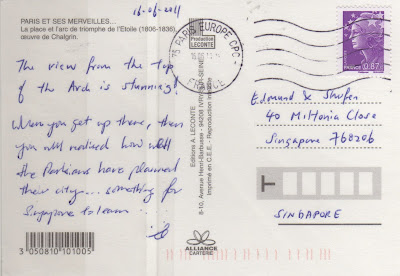 16-06-2011
PARIS ET SES MERVEILLES...
La place et l'arc de triomphe de l'Etoile (1806-1836),
œuvre de Chalgrin.
The view from the top
of the Arc is stunning!
When you get up there, then
you will realised how well
the Parisians have planned
their city... something for
Singapore to learn...
3 050810 101005
Production
LECONTE
Editions A. LECONTE
8-10, Avenue Henri-Barbusse - 94200 IVRY-SUR-SEINE
Imprimé en C.E.E. - Reproduction
ALLIANCE
CARTERIE
75 PARIS EUROPE CPC
FRANCE
FRANCE
0,87
Edmund & Shufen
40 Mittonia Close
Singapore 768206
SINGAPORE